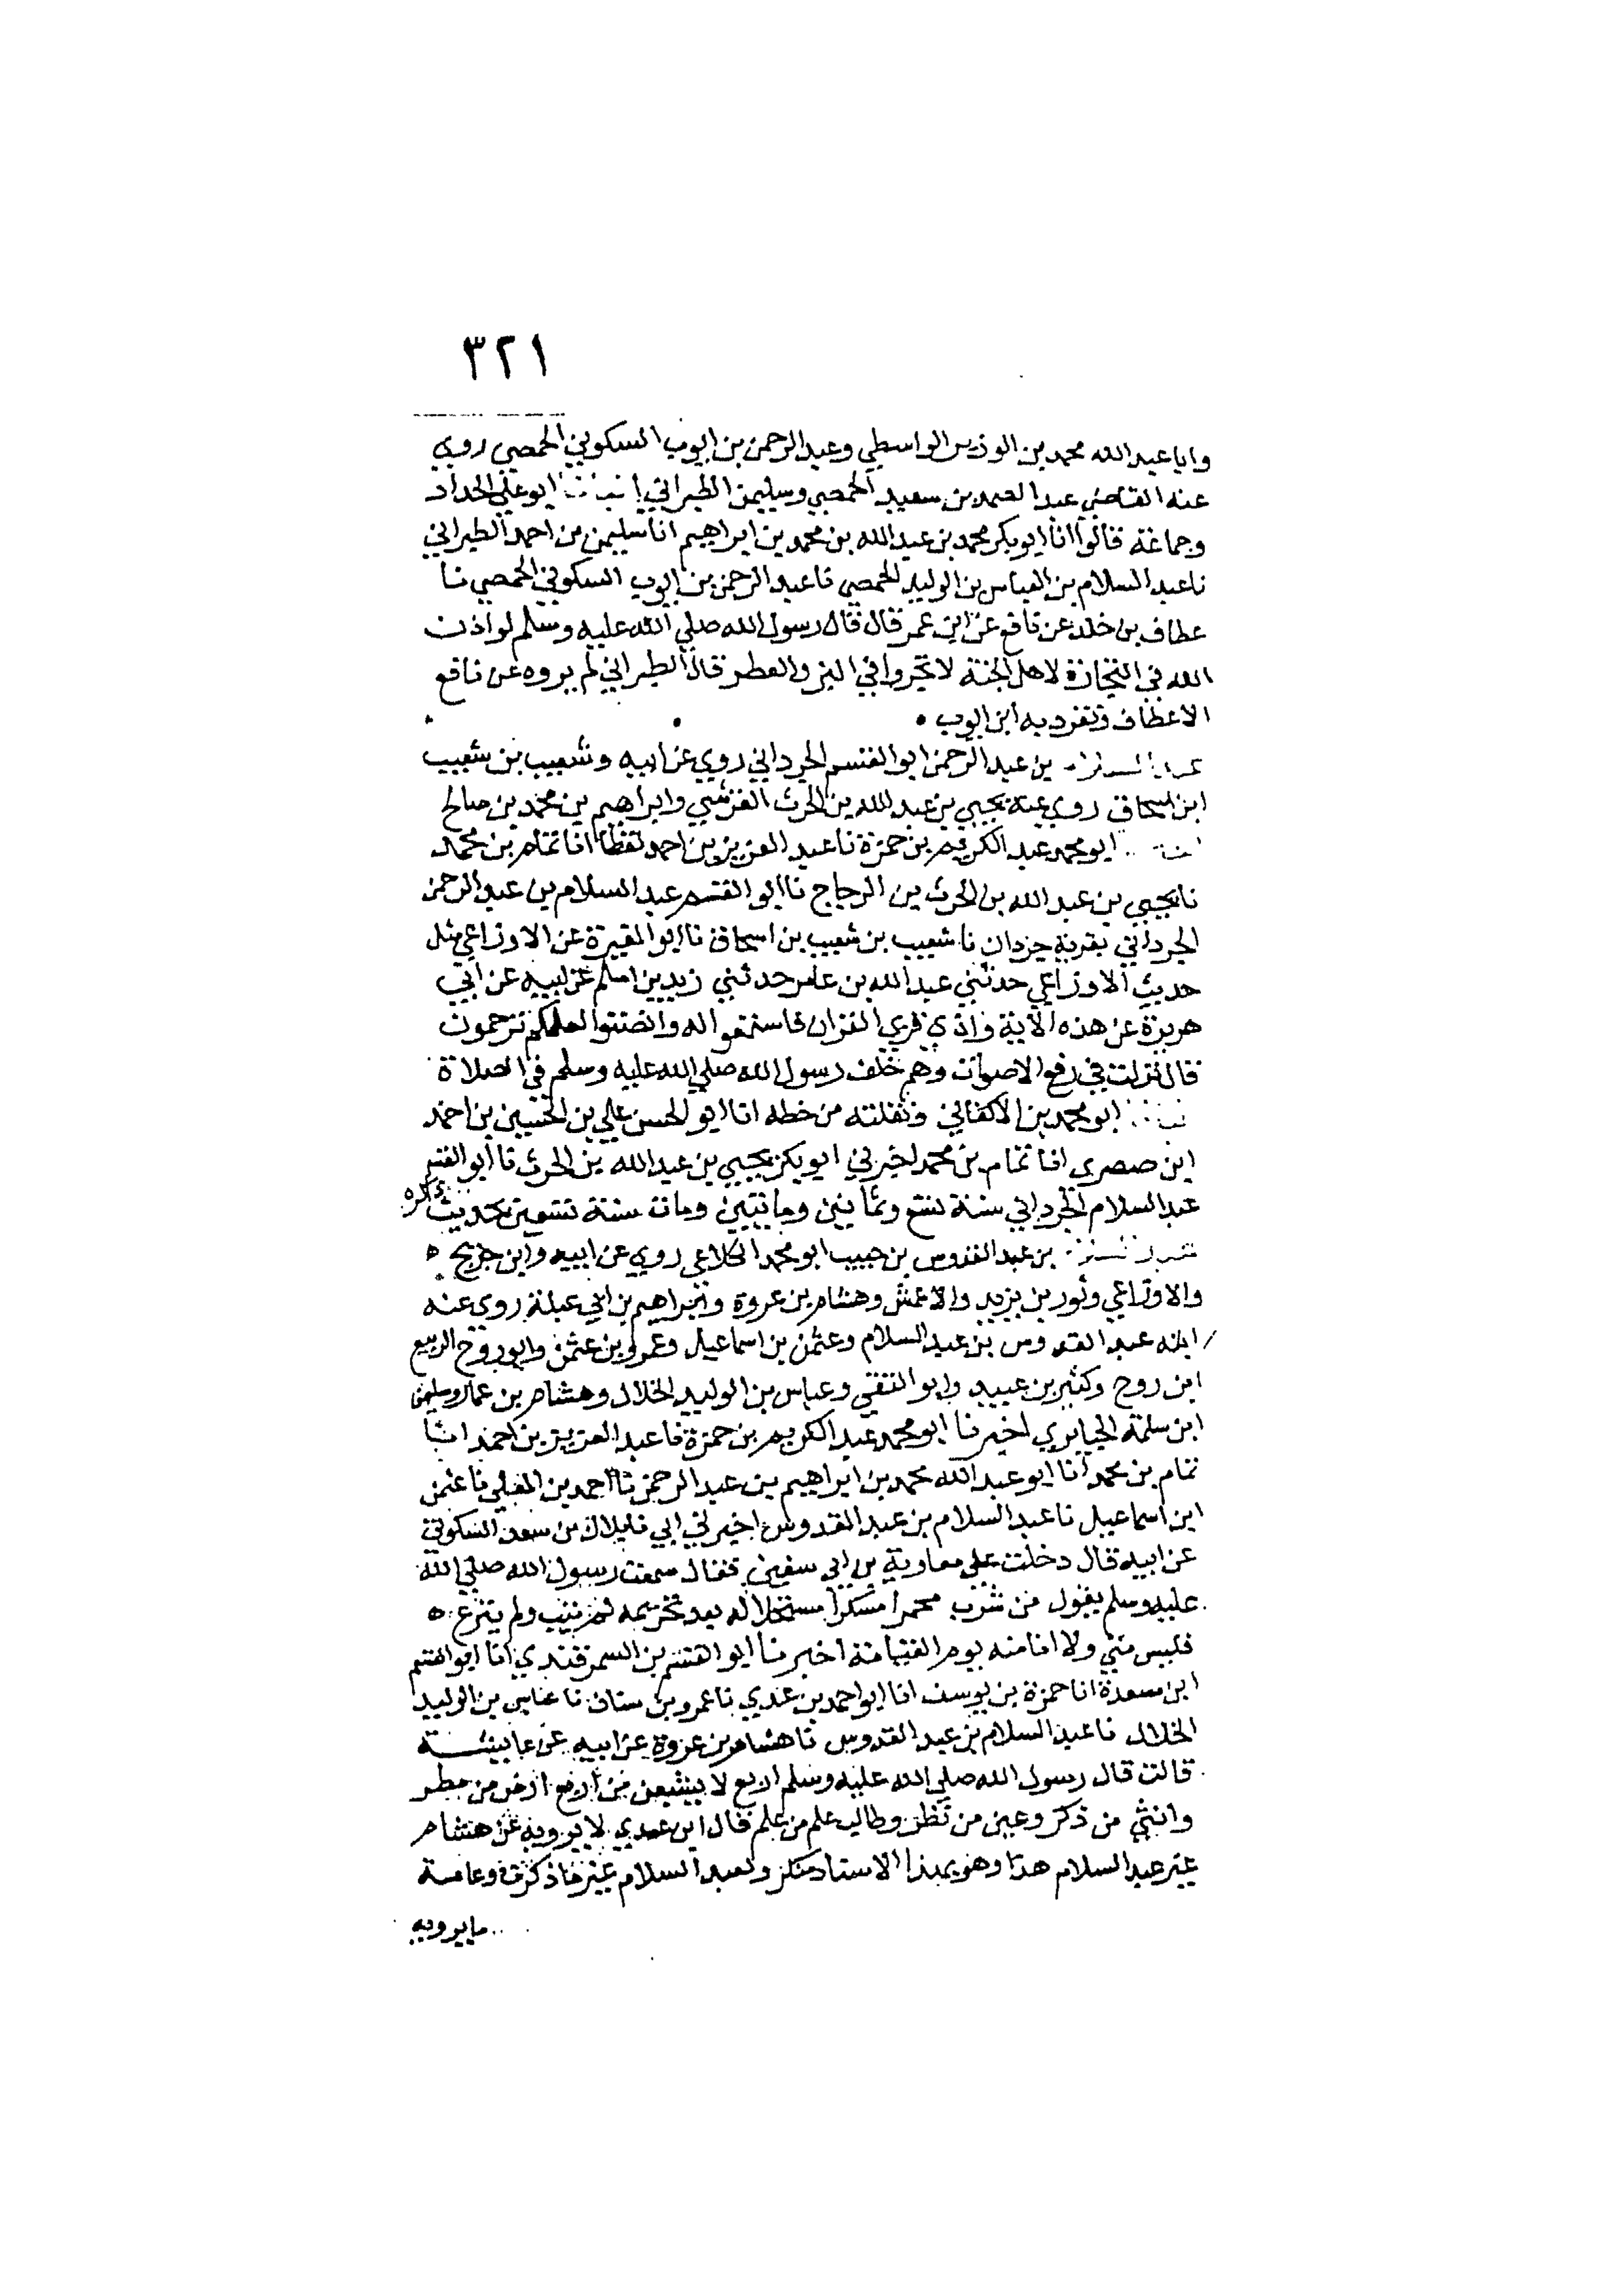 ٣٢١
وابا عبد الله محمد بن الوزير الواسطي وعبد الرحمن بن ايوب السكوني الحمصي روي
عنه القاضي عبد الصمد بن سعيد الحمصي وسليمن الطبراني ابو علي الحداد
وجماعة قالوا انا ابو بكر محمد بن عبد الله بن محمد بن ابراهيم انا سليمن بن احمد الطبراني
نا عبد السلام بن العباس بن الوليد الحمصي نا عبد الرحمن بن ايوب السكوني الحمصي نا
عطاف بن خلد عن نافع عن ابن عمر قال قال رسول الله صلي الله عليه وسلم لو اذن
الله في التجارة لاهل الجنة لاتجروا في البز والعطر قال الطبراني لم يروه عن نافع
الا عطاف وتفرد به ابن ايوب
بن عبد الرحمن ابو القسم الحرداني روي عن ابيه وشعيب بن شعيب
ابن اسحاق روي عنه يحيي بن عبد الله بن الحرث القرشي وابراهيم بن محمد بن صالح
ابو محمد عبد الكريم بن حمزة نا عبد العزيز بن احمد لفظا انا تمام بن محمد
نا يحيي بن عبد الله بن الحرث بن الزجاج نا ابو القسم عبد السلام بن عبد الرحمن
الحرداني بقرية حردان نا شعيب بن شعيب بن اسحاق نا ابو المغيرة عن الاوزاعي مثل
حديث الاوزاعي حدثني عبد الله بن عامر حدثني زيد بن اسلم عن ابيه عن ابي
هريرة عن هذه الاية واذي قري القران فاستمعوا له وانصتوا لعلكم ترحمون
قال نزلت في رفع الاصوات وهم خلف رسول الله صلي الله عليه وسلم في الصلاة
ابو محمد بن الاكفاني ونقلته من خطه انا ابو الحسن علي بن الحسين بن احمد
ابن صصري انا تمام بن محمد اخبرني ابو بكر يحيي بن عبد الله بن الحرث نا ابو القسم
عبد السلام الحرداني سنة تسع وثمانين ومايتين ومات سنة تسعين بحديث ذكره
بن عبد القدوس بن حبيب ابو محمد الكلاعي روي عن ابيه وابن جريج ه
والاوزاعي وثور بن يزيد والاعمش وهشام بن عروة وابراهيم بن ابي عبلة روي عنه
ابنه عبد القدوس بن عبد السلام وعثمن بن اسماعيل وعمرو بن عثمن وابو روح الربيع
ابن روح وكثير بن عبيد وابو التقي وعباس بن الوليد الخلال وهشام بن عمار وسليمن
ابن سلمة الخبايري اخبرنا ابو محمد عبد الكريم بن حمزة نا عبد العزيز بن احمد انا
تمام بن محمد انا ابو عبد الله محمد بن ابراهيم بن عبد الرحمن نا احمد بن المعلي نا عثمن
ابن اسماعيل نا عبد السلام بن عبد القدوس اخبرني ابي نا بلال بن سعد السكوني
عن ابيه قال دخلت علي معاوية بن ابي سفين فقال سمعت رسول الله صلي الله
عليه وسلم يقول من شرب مسكرا مستحلا له بعد تحريمه لم يتب ولم ينزع ه
فليس مني ولا انا منه يوم القيامة اخبرنا ابو القسم بن السمرقندي انا ابو القسم
ابن مسعدة انا حمزة بن يوسف انا ابو احمد بن عدي نا عمرو بن سنان نا عباس بن الوليد
الخلال نا عبد السلام بن عبد القدوس نا هشام بن عروة عن ابيه عن عايشة
قالت قال رسول الله صلي الله عليه وسلم اربع لا يشبعن من اربع ارض من مطر
وانثي من ذكر وعين من نظر وطالب علم من علم قال ابن عدي لا يرويه عن هشام
غير عبد السلام هذا وهو بهذا الاسناد منكر ولعبد السلام غير ما ذكرت وعامة
ما يرويه